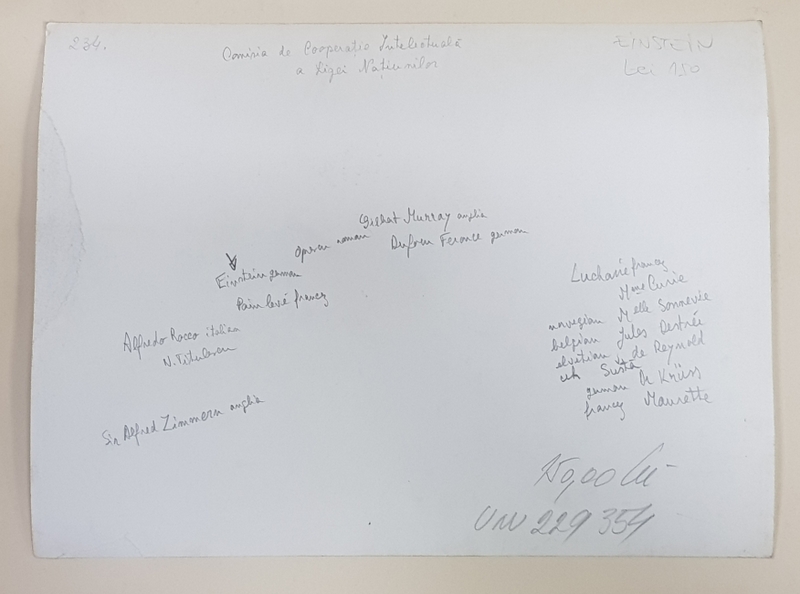 234.
Comisia de Cooperație Intelectuală
a Ligei Națiunilor
EINSTEIN
Lei 150
Gilbert Murray anglia
Oprescu roman
Dufour Ferance german
Einstein german
Painlevé francez
Alfredo Rocco italia
N. Titulescu
Sir Alfred Zimmern anglia
Luchaire francez
Mme Curie
norvegian Melle Sonnevie
belgian Jules Destrée
elvetian de Reynold
ceh Susta
german Dr Krüss
francez Maurette
150,00 lei
229 354